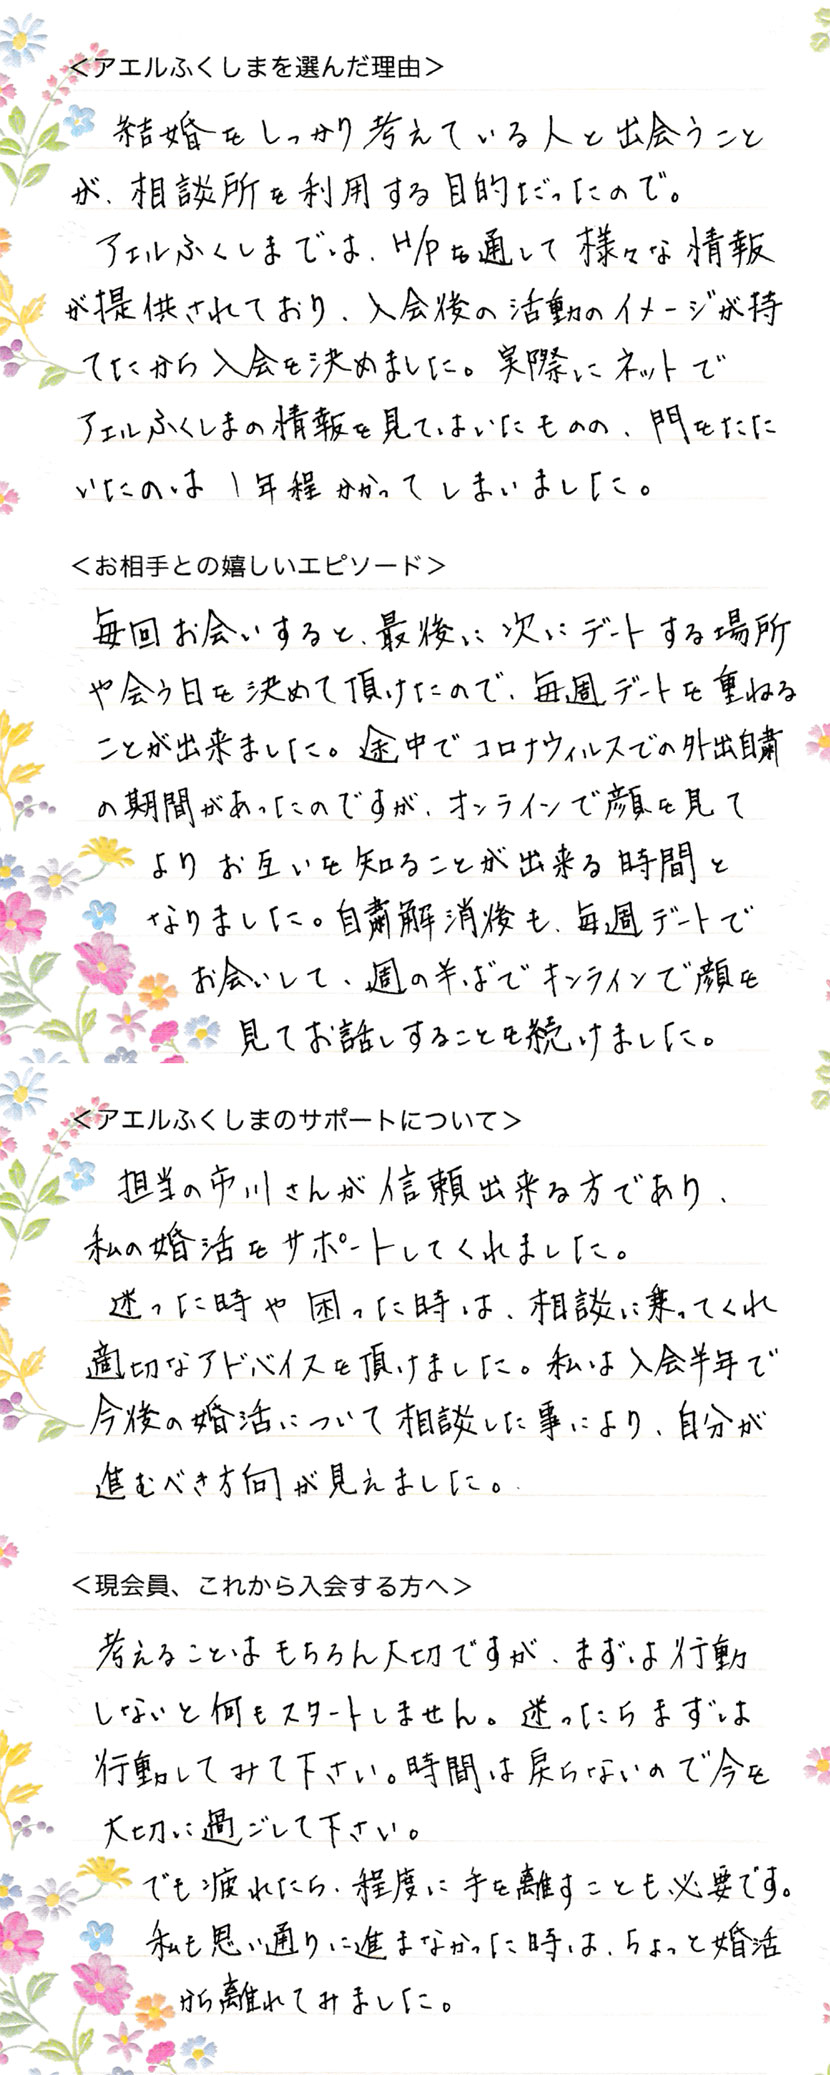 ＜アエルふくしまを選んだ理由＞
結婚をしっかり考えている人と出会うこと
が、相談所を利用する目的だったので。
アエルふくしまでは、H/Pを通して様々な情報
が提供されており、入会後の活動のイメージが持
てたから入会を決めました。実際にネットで
アエルふくしまの情報を見てはいたものの、門をたた
いたのは1年程かかってしまいました。
＜お相手との嬉しいエピソード＞
毎回お会いすると、最後に次にデートする場所
や会う日を決めて頂けたので、毎週デートを重ねる
ことが出来ました。途中でコロナウィルスでの外出自粛
の期間があったのですが、オンラインで顔を見て
よりお互いを知ることが出来る時間と
なりました。自粛解消後も、毎週デートで
お会いして、週の半ばでオンラインで顔を
見てお話しすることを続けました。
＜アエルふくしまのサポートについて＞
担当の市川さんが信頼出来る方であり、
私の婚活をサポートしてくれました。
迷った時や困った時は、相談に乗ってくれ
適切なアドバイスを頂けました。私は入会半年で
今後の婚活について相談した事により、自分が
進むべき方向が見えました。
＜現会員、これから入会する方へ＞
考えることはもちろん大切ですが、まずは行動
しないと何もスタートしません。迷ったらまずは
行動してみて下さい。時間は戻らないので今を
大切に過ごして下さい。
でも疲れたら、程度に手を離すことも必要です。
私も思い通りに進まなかった時は、ちょっと婚活
から離れてみました。